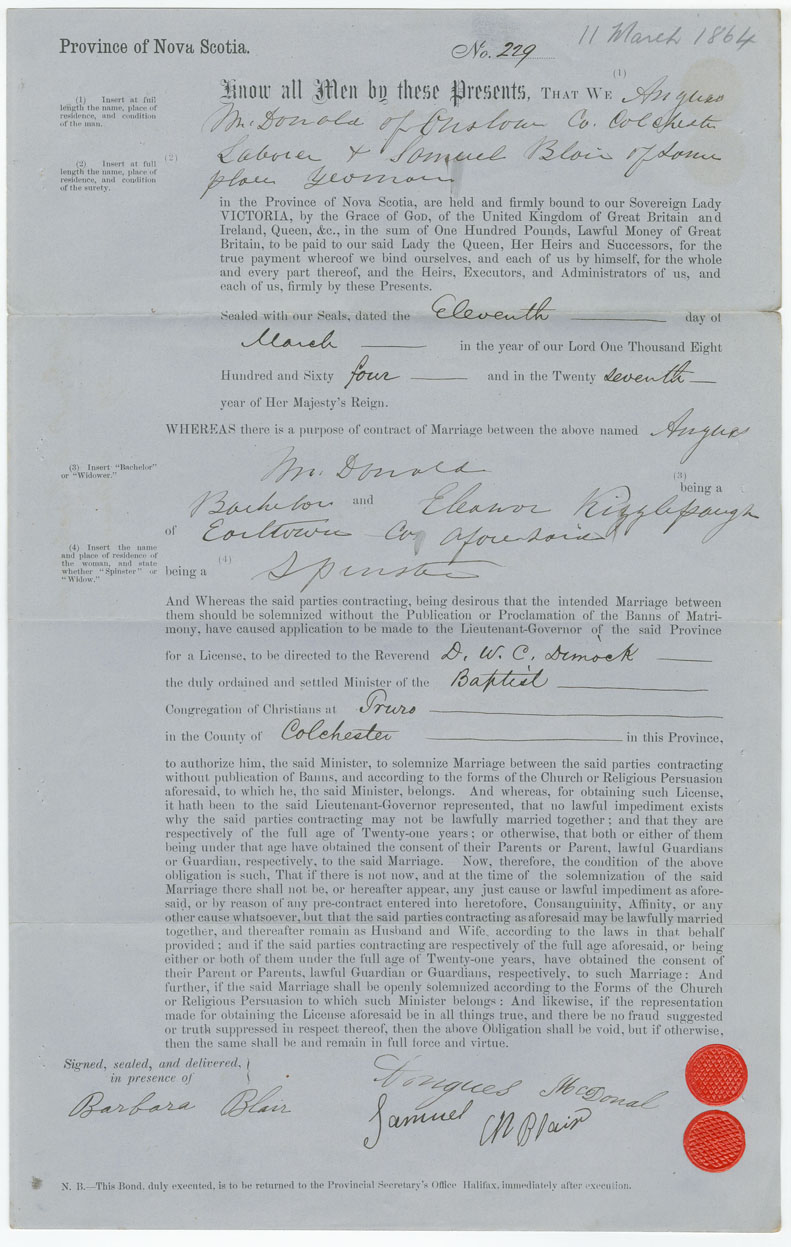 11 March 1864
Province of Nova Scotia.
No. 229
(1)
Know all Men by these Presents, THAT WE Angus
(1) Insert at full
length the name, place of
residence, and condition
of the man.
McDonald of Onslow Co. Colchester
(2)
Laborer & Samuel Blair of same
(2) Insert at full
length the name, place of
residence, and condition
of the surety.
place Yeoman
in the Province of Nova Scotia, are held and firmly bound to our Sovereign Lady
VICTORIA, by the Grace of GOD, of the United Kingdom of Great Britain and
Ireland, Queen, &c., in the sum of One Hundred Pounds, Lawful Money of Great
Britain, to be paid to our said Lady the Queen, Her Heirs and Successors, for the
true payment whereof we bind ourselves, and each of us by himself, for the whole
and every part thereof, and the Heirs, Executors, and Administrators of us, and
each of us, firmly by these Presents.
Sealed with our Seals, dated the Eleventh day of
March in the year of our Lord One Thousand Eight
Hundred and Sixty four and in the Twenty seventh
year of Her Majesty's Reign.
WHEREAS there is a purpose of contract of Marriage between the above named Angus
(3) Insert "Bachelor"
or "Widower."
McDonald (3) being a
Bachelor and Eleanor Kizzlepaugh
of Earltown Co aforesaid
(4) Insert the name
and place of residence of
the woman, and state
whether "Spinster" or
"Widow."
being a (4) Spinster
And Whereas the said parties contracting, being desirous that the intended Marriage between
them should be solemnized without the Publication or Proclamation of the Banns of Matri-
mony, have caused application to be made to the Lieutenant-Governor of the said Province
for a License, to be directed to the Reverend D. W. C. Dimock
the duly ordained and settled Minister of the Baptist
Congregation of Christians at Truro
in the County of Colchester in this Province,
to authorize him, the said Minister, to solemnize Marriage between the said parties contracting
without publication of Banns, and according to the forms of the Church or Religious Persuasion
aforesaid, to which he, the said Minister, belongs. And whereas, for obtaining such License,
it hath been to the said Lieutenant-Governor represented, that no lawful impediment exists
why the said parties contracting may not be lawfully married together; and that they are
respectively of the full age of Twenty-one years; or otherwise, that both or either of them
being under that age have obtained the consent of their Parents or Parent, lawful Guardians
or Guardian, respectively, to the said Marriage. Now, therefore, the condition of the above
obligation is such, That if there is not now, and at the time of the solemnization of the said
Marriage there shall not be, or hereafter appear, any just cause or lawful impediment as afore-
said, or by reason of any pre-contract entered into heretofore, Consanguinity, Affinity, or any
other cause whatsoever, but that the said parties contracting as aforesaid may be lawfully married
together, and thereafter remain as Husband and Wife, according to the laws in that behalf
provided; and if the said parties contracting are respectively of the full age aforesaid, or being
either or both of them under the full age of Twenty-one years, have obtained the consent of
their Parent or Parents, lawful Guardian or Guardians, respectively, to such Marriage: And
further, if the said Marriage shall be openly solemnized according to the Forms of the Church
or Religious Persuasion to which such Minister belongs: And likewise, if the representation
made for obtaining the License aforesaid be in all things true, and there be no fraud suggested
or truth suppressed in respect thereof, then the above Obligation shall be void, but if otherwise,
then the same shall be and remain in full force and virtue.
Signed, sealed, and delivered,
in presence of
McDonal
Barbara Blair
Samuel Blair
N. B.—This Bond, duly executed, is to be returned to the Provincial Secretary's Office Halifax, immediately after execution.